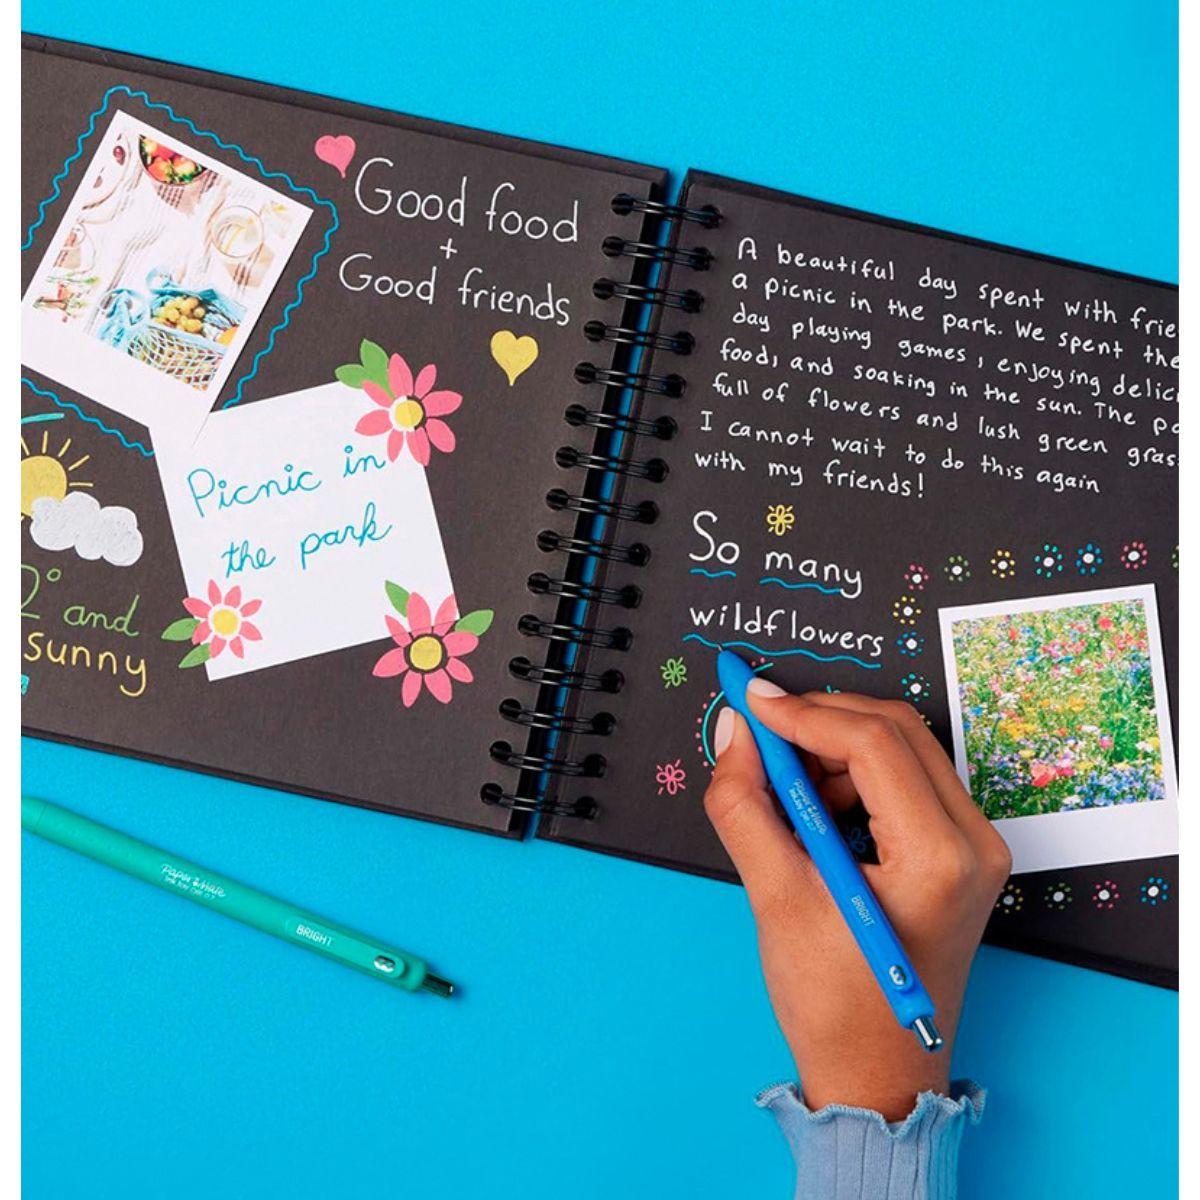 Good food
+
Good friends
Picnic in
the park
2° and
sunny
A beautiful day spent with
a picnic in the park. We spent the
day playing games, enjoying
food, and soaking in the sun. The
full of flowers and lush green
I cannot wait to do this again
with my friends!
So many
wildflowers
Paper Mate
InkJoy Gel 0.7
BRIGHT
Paper Mate
InkJoy Gel 0.7
BRIGHT